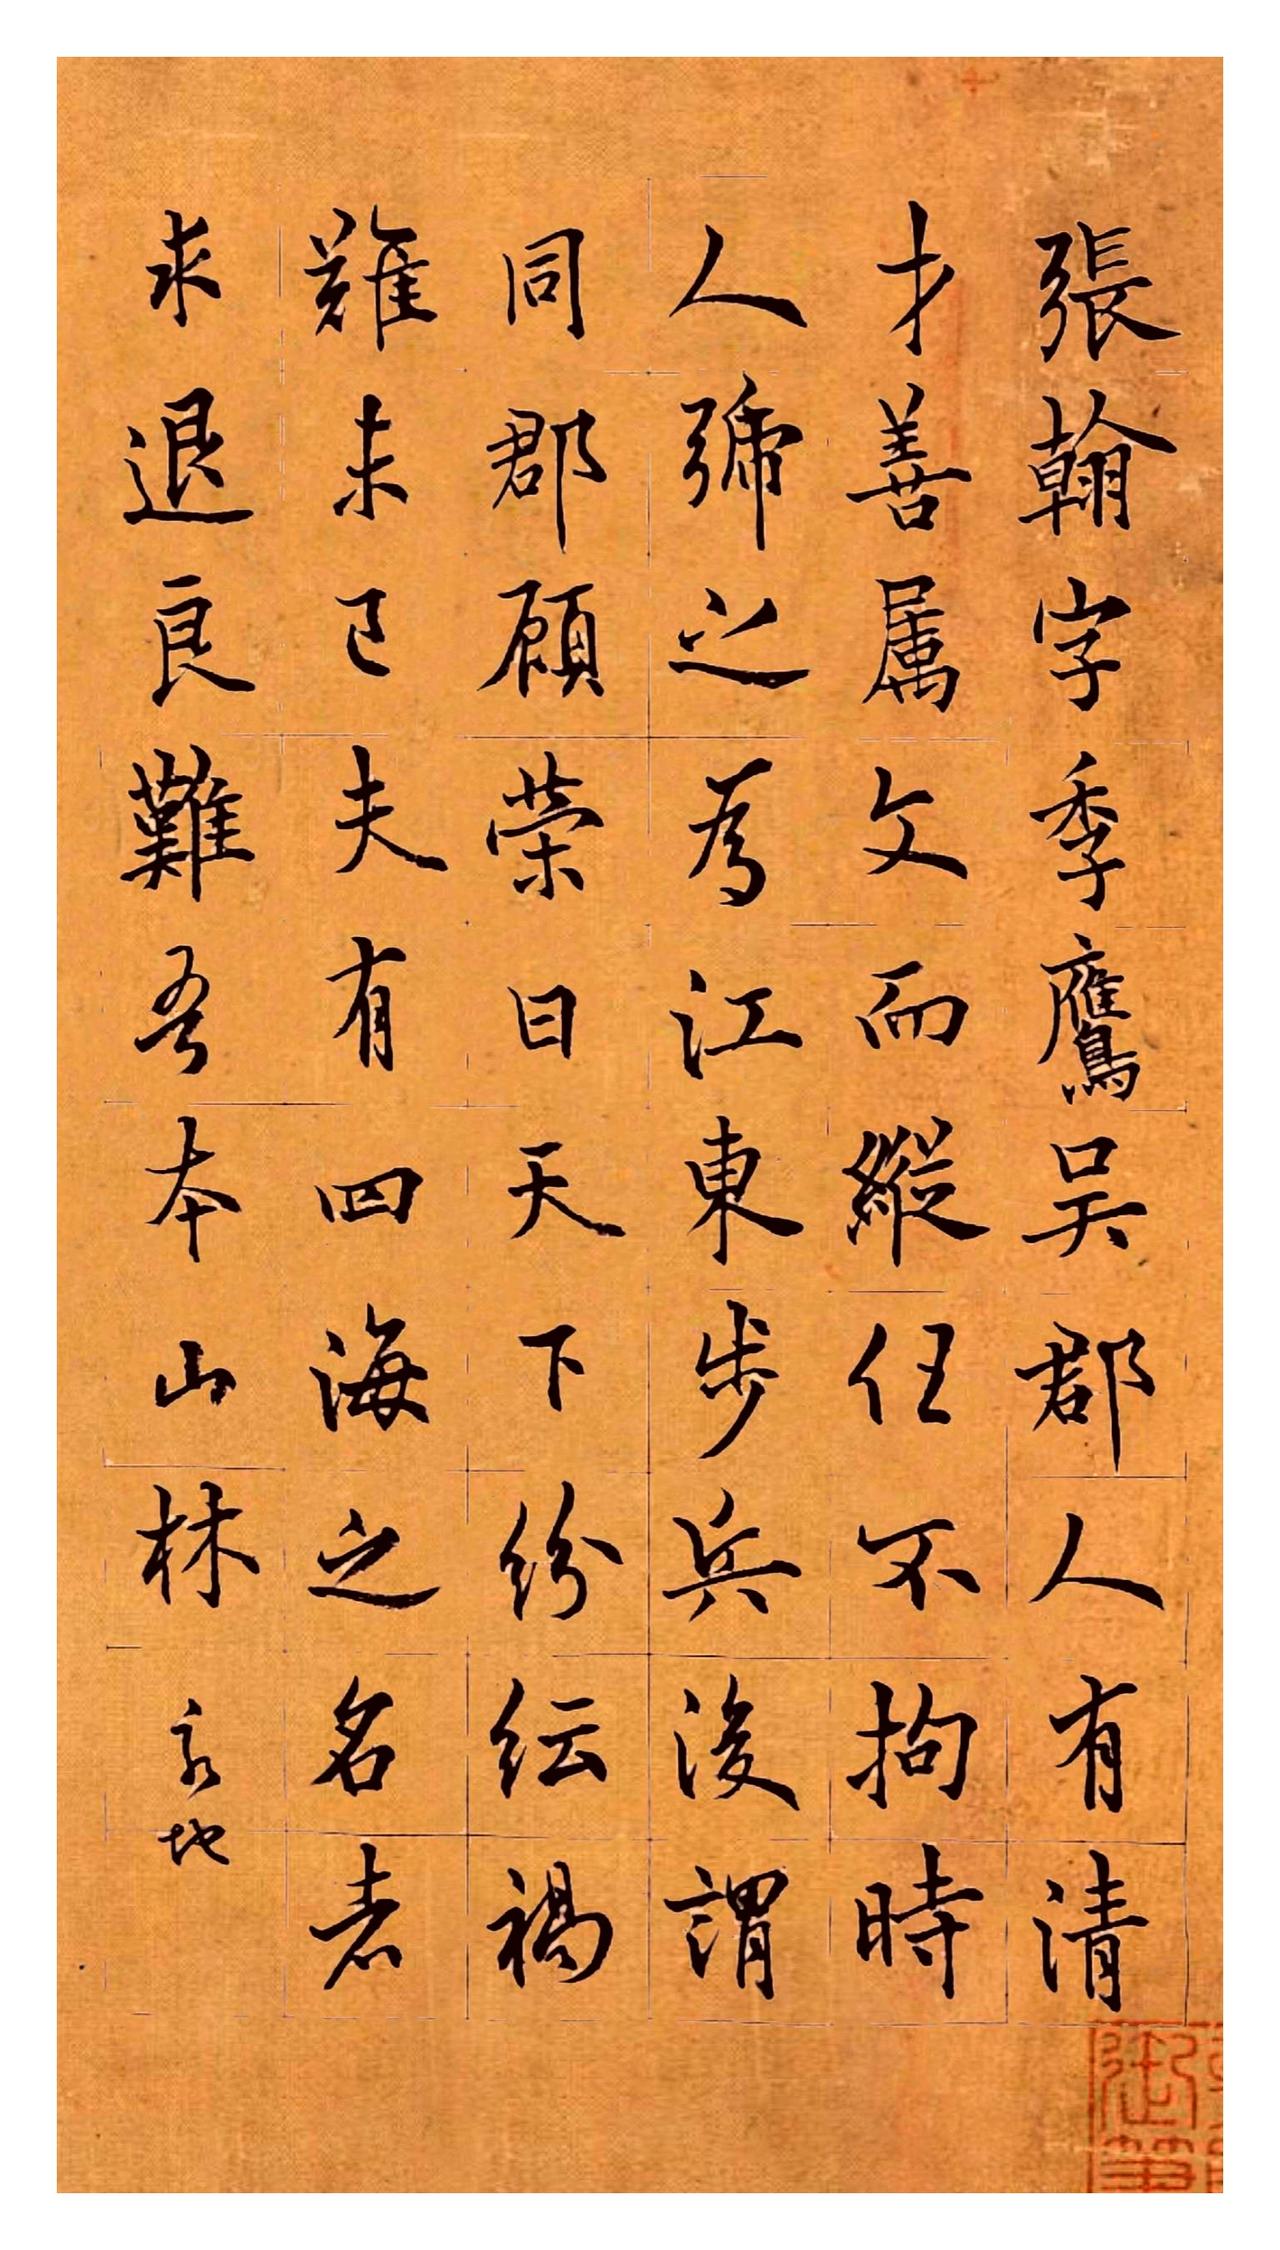 張翰字季鷹吴郡人有清
才善属文而縱任不拘時
人號之為江東步兵後謂
同郡顧榮曰天下紛紜禍
難未已夫有四海之名者
求退良難吾本山林